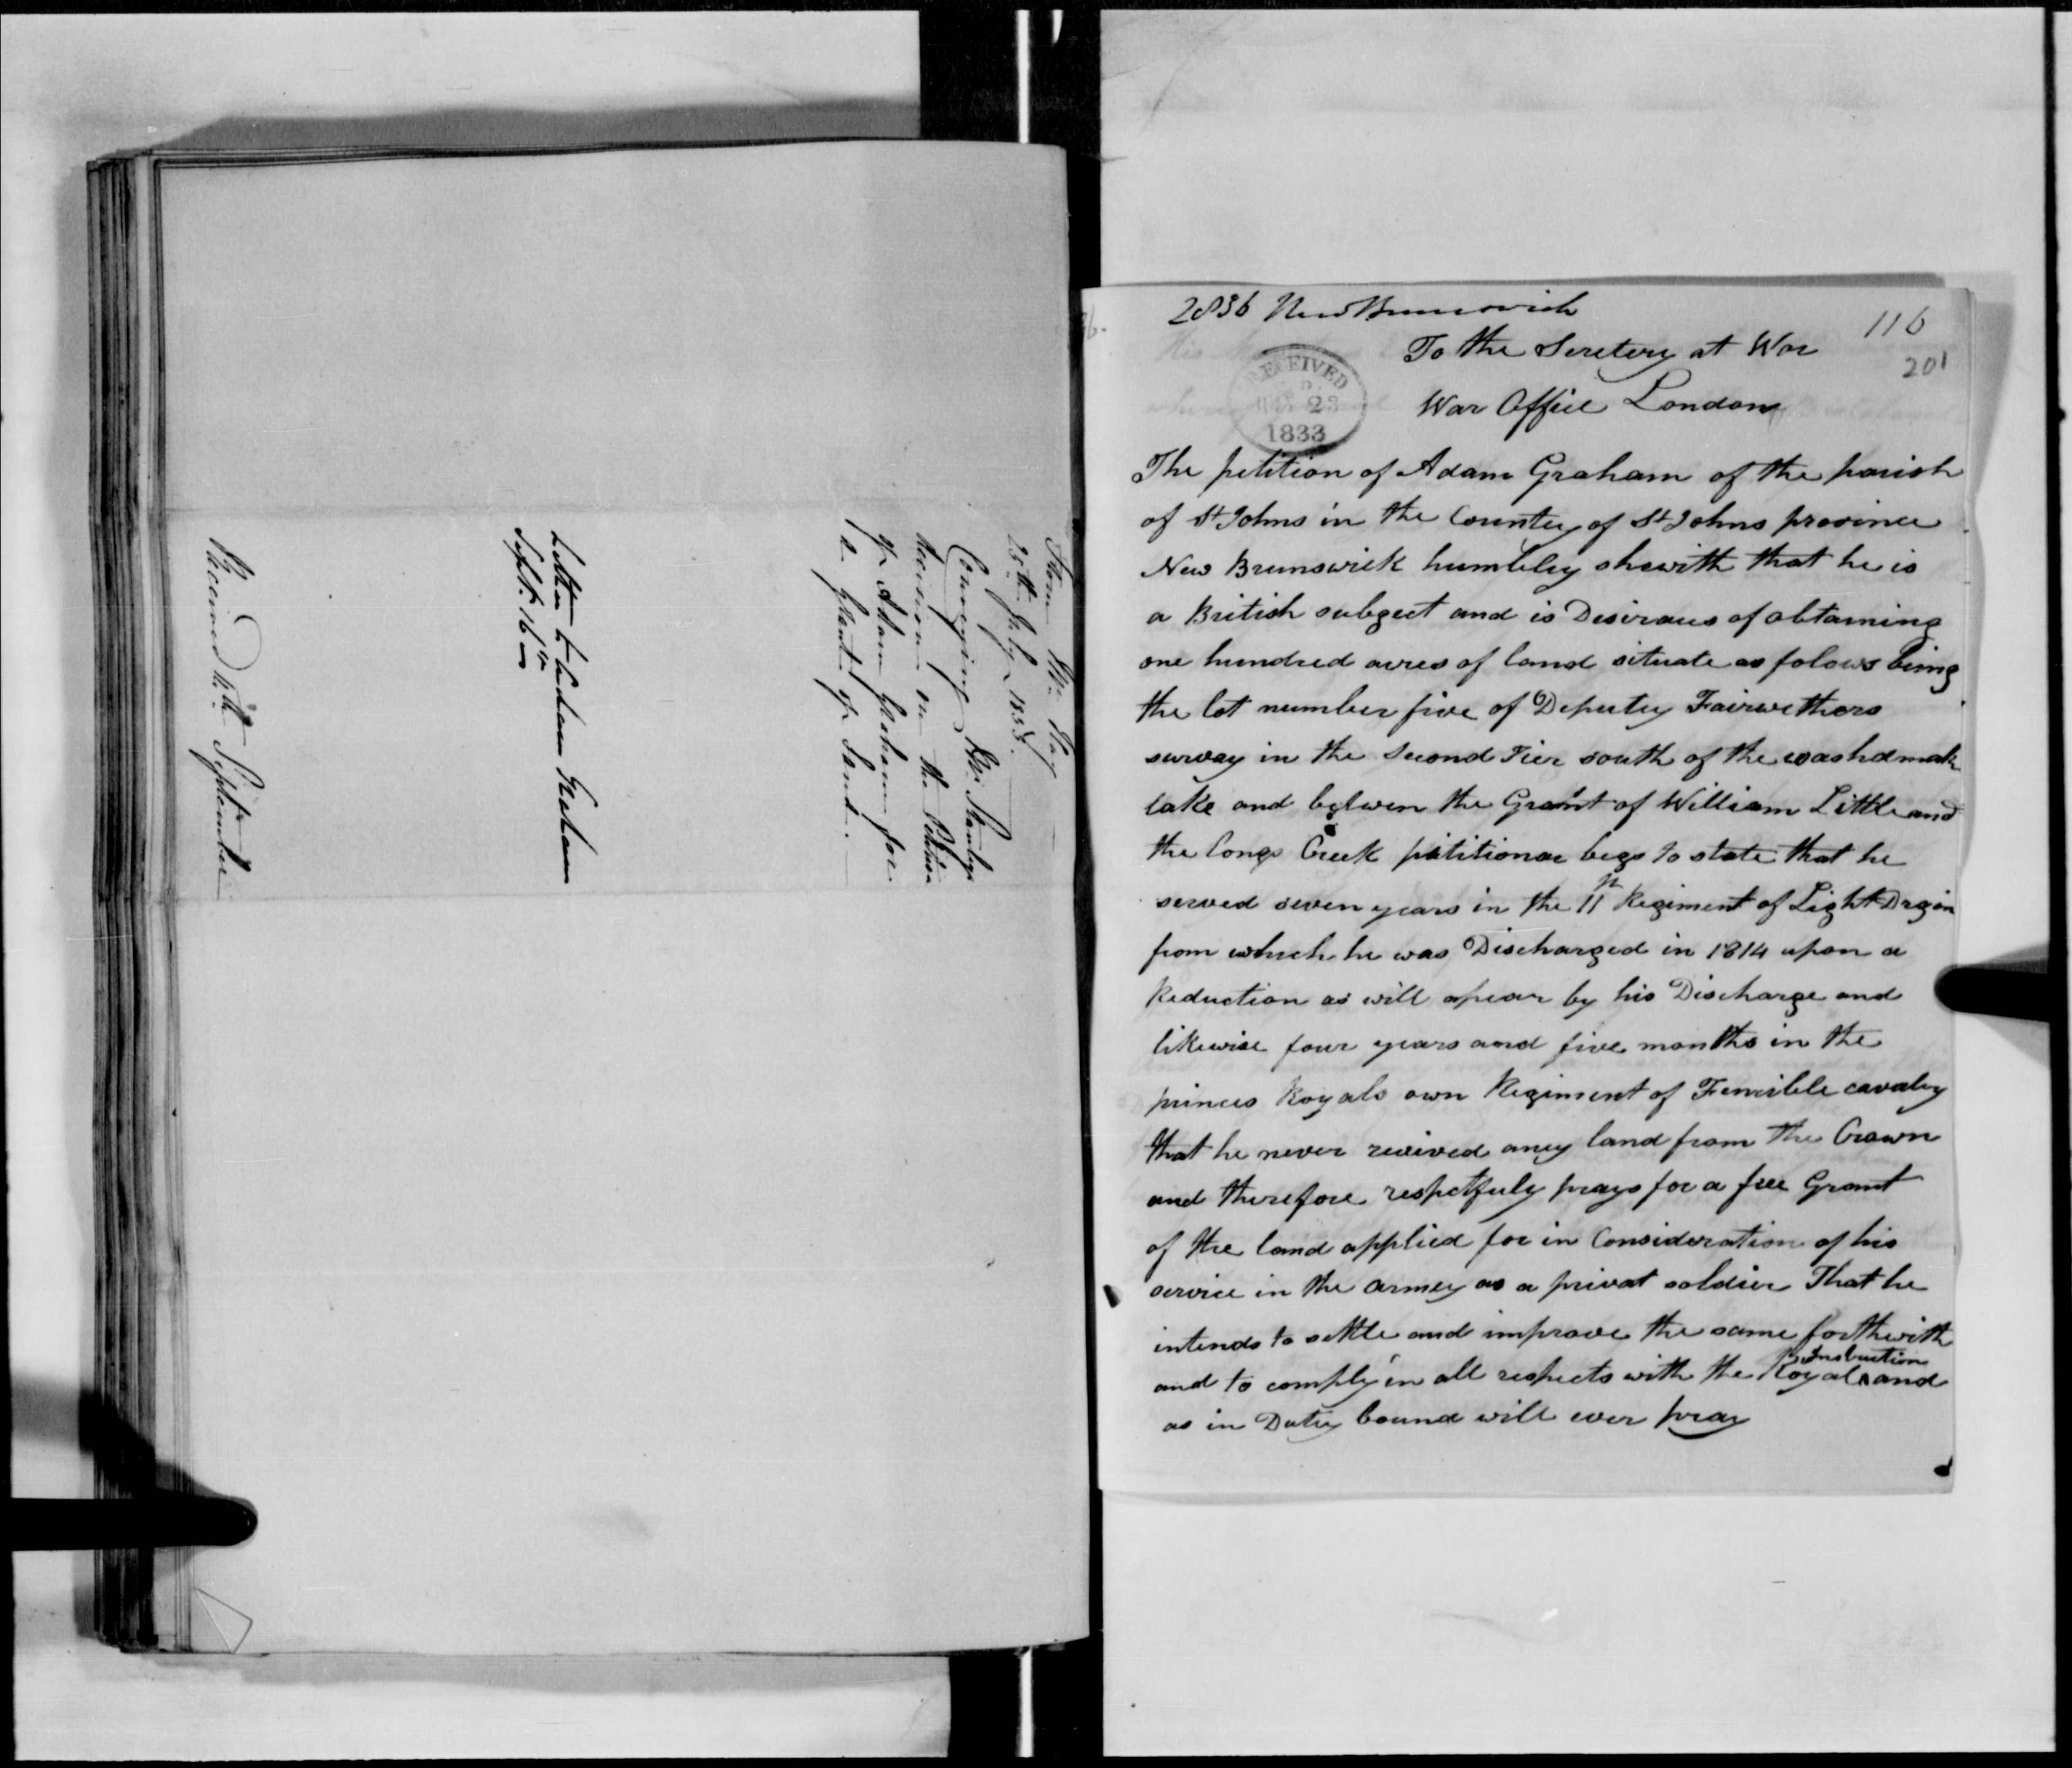 From Mr. Hay
25th July 1833.
Conveying Mr. Stanley's
decision on the Petition
of Adam Graham for
a Grant of Land.
Letter to Adam Graham
Sept. 16th
Received 11th September
2836 New Brunswick
116
201
To the Seretery at War
RECEIVED
23
1833
War Office London
The petition of Adam Graham of the parish
of St Johns in the County of St Johns province
New Brunswick humbley shewith that he is
a British subgect and is Desiraus of obtaining
one hundred acres of land situate as folows being
the lot number five of Deputey Fairwethers
survay in the Second Tier south of the washdmak
lake and betwen the Grant of William Little and
the Longs Creek pititionar begs to state that he
served seven years in the 11th Regiment of Light Dragon
from which he was Discharged in 1814 upon a
Reduction as will apear by his Discharge and
likewise four years and five months in the
princes Royals own Regiment of Fensible cavalry
that he never reeived aney land from the Crown
and therefore respectfuly prays for a free Grant
of the land applied for in Consideration of his
service in the armey as a privat soldier That he
intends to settle and improve the same forthwith
and to comply in all respects with the Royal Instruction and
as in Dutey bound will ever pray